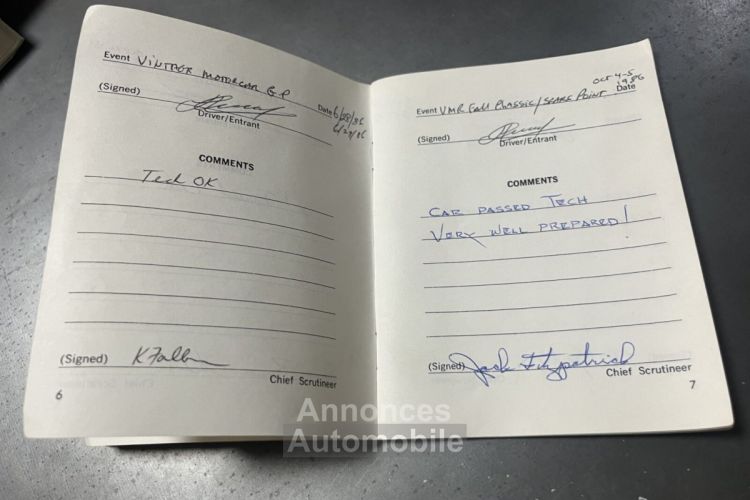 Event VINTAGE MOTORCAR G.P
(Signed)
Date 6/28/86
Driver/Entrant
COMMENTS
Tech OK
(Signed) K Fallon
Chief Scrutineer
6
Oct 4-5
1986
Event VMR FALL CLASSIC/SEARS POINT Date
(Signed)
Driver/Entrant
COMMENTS
CAR PASSED TECH
VERY WELL PREPARED!
(Signed) Jack Fitzpatrick
Chief Scrutineer
7
Annonces
Automobile